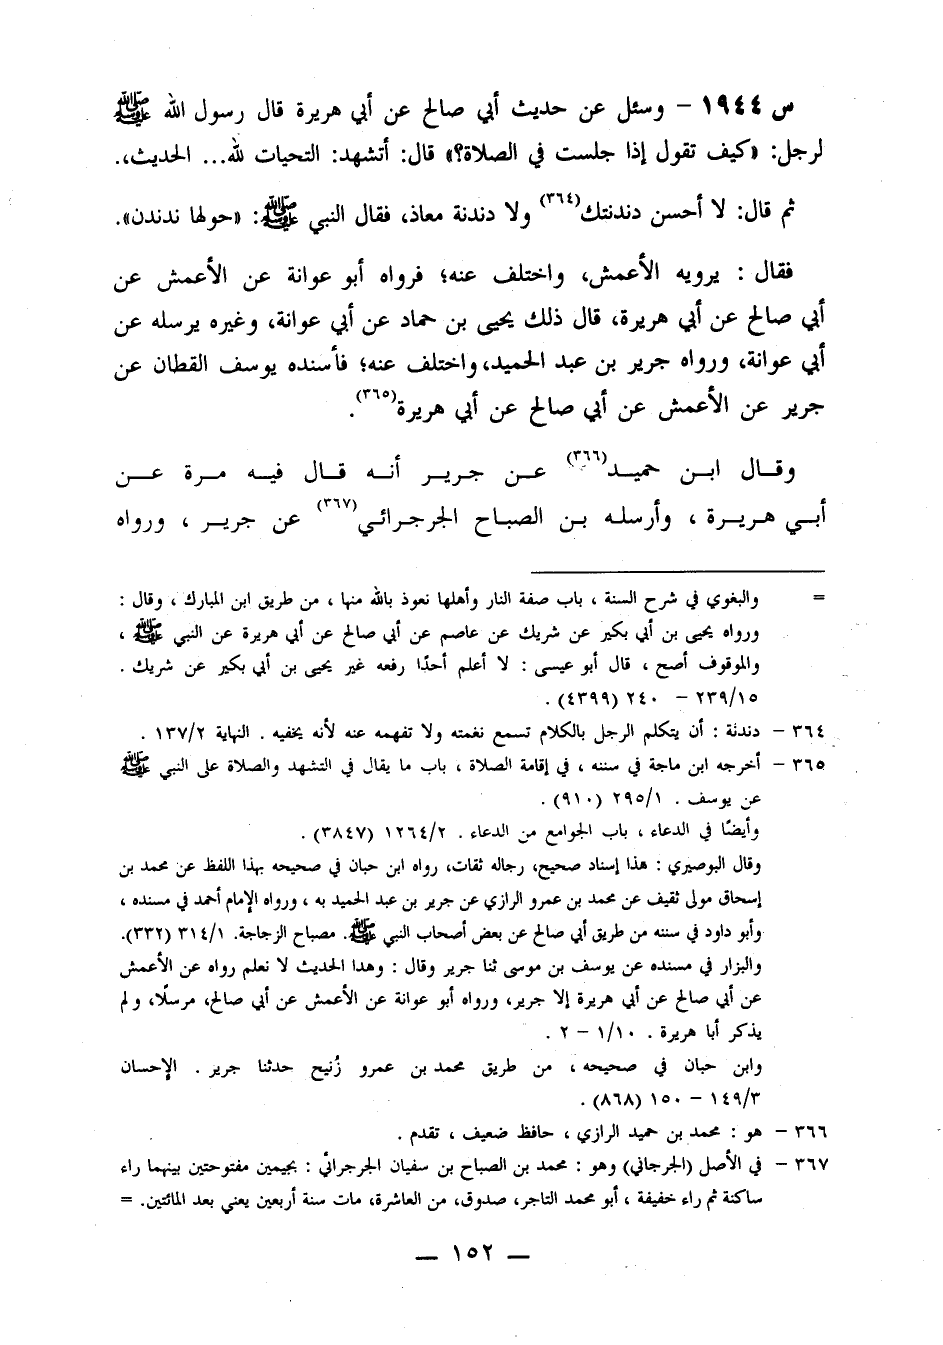 س ١٩٤٤ – وسئل عن حديث أبي صالح عن أبي هريرة قال رسول الله ﷺ
لرجل: «كيف تقول إذا جلست في الصلاة؟» قال: أتشهد: التحيات لله... الحديث،.
ثم قال: لا أحسن دندنتك(٣٦٤) ولا دندنة معاذ، فقال النبي ﷺ: «حولها ندندن».
فقال : يرويه الأعمش، واختلف عنه؛ فرواه أبو عوانة عن الأعمش عن
أبي صالح عن أبي هريرة، قال ذلك يحيى بن حماد عن أبي عوانة، وغيره يرسله عن
أبي عوانة، ورواه جرير بن عبد الحميد، واختلف عنه؛ فأسنده يوسف القطان عن
جرير عن الأعمش عن أبي صالح عن أبي هريرة(٣٦٥).
وقال ابن حميد(٣٦٦) عن جرير أنه قال فيه مرة عن
أبي هريرة ، وأرسله بن الصباح الجرجرائي(٣٦٧) عن جرير ، ورواه
= والبغوي في شرح السنة ، باب صفة النار وأهلها نعوذ بالله منها ، من طريق ابن المبارك ، وقال :
ورواه يحيى بن أبي بكير عن شريك عن عاصم عن أبي صالح عن أبي هريرة عن النبي ﷺ ،
والموقوف أصح ، قال أبو عيسى : لا أعلم أحدًا رفعه غير يحيى بن أبي بكير عن شريك .
٢٣٩/١٥ – ٢٤٠ (٤٣٩٩) .
٣٦٤ – دندنة : أن يتكلم الرجل بالكلام تسمع نغمته ولا تفهمه عنه لأنه يخفيه . النهاية ١٣٧/٢ .
٣٦٥ – أخرجه ابن ماجة في سننه ، في إقامة الصلاة ، باب ما يقال في التشهد والصلاة على النبي ﷺ
عن يوسف . ٢٩٥/١ (٩١٠) .
وأيضًا في الدعاء ، باب الجوامع من الدعاء . ١٢٦٤/٢ (٣٨٤٧) .
وقال البوصيري : هذا إسناد صحيح، رجاله ثقات، رواه ابن حبان في صحيحه بهذا اللفظ عن محمد بن
إسحاق مولى ثقيف عن محمد بن عمرو الرازي عن جرير بن عبد الحميد به ، ورواه الإمام أحمد في مسنده ،
وأبو داود في سننه من طريق أبي صالح عن بعض أصحاب النبي ﷺ. مصباح الزجاجة. ٣١٤/١ (٣٣٢).
والبزار في مسنده عن يوسف بن موسى ثنا جرير وقال : وهذا الحديث لا نعلم رواه عن الأعمش
عن أبي صالح عن أبي هريرة إلا جرير، ورواه أبو عوانة عن الأعمش عن أبي صالح، مرسلًا، ولم
يذكر أبا هريرة . ١/١٠ – ٢ .
وابن حبان في صحيحه ، من طريق محمد بن عمرو زُنيج حدثنا جرير . الإحسان
١٤٩/٣ – ١٥٠ (٨٦٨) .
٣٦٦ – هو : محمد بن حميد الرازي ، حافظ ضعيف ، تقدم .
٣٦٧ – في الأصل (الجرجاني) وهو : محمد بن الصباح بن سفيان الجرجرائي : بجيمين مفتوحتين بينهما راء
ساكنة ثم راء خفيفة ، أبو محمد التاجر، صدوق، من العاشرة، مات سنة أربعين يعني بعد المائتين. =
— ١٥٢ —